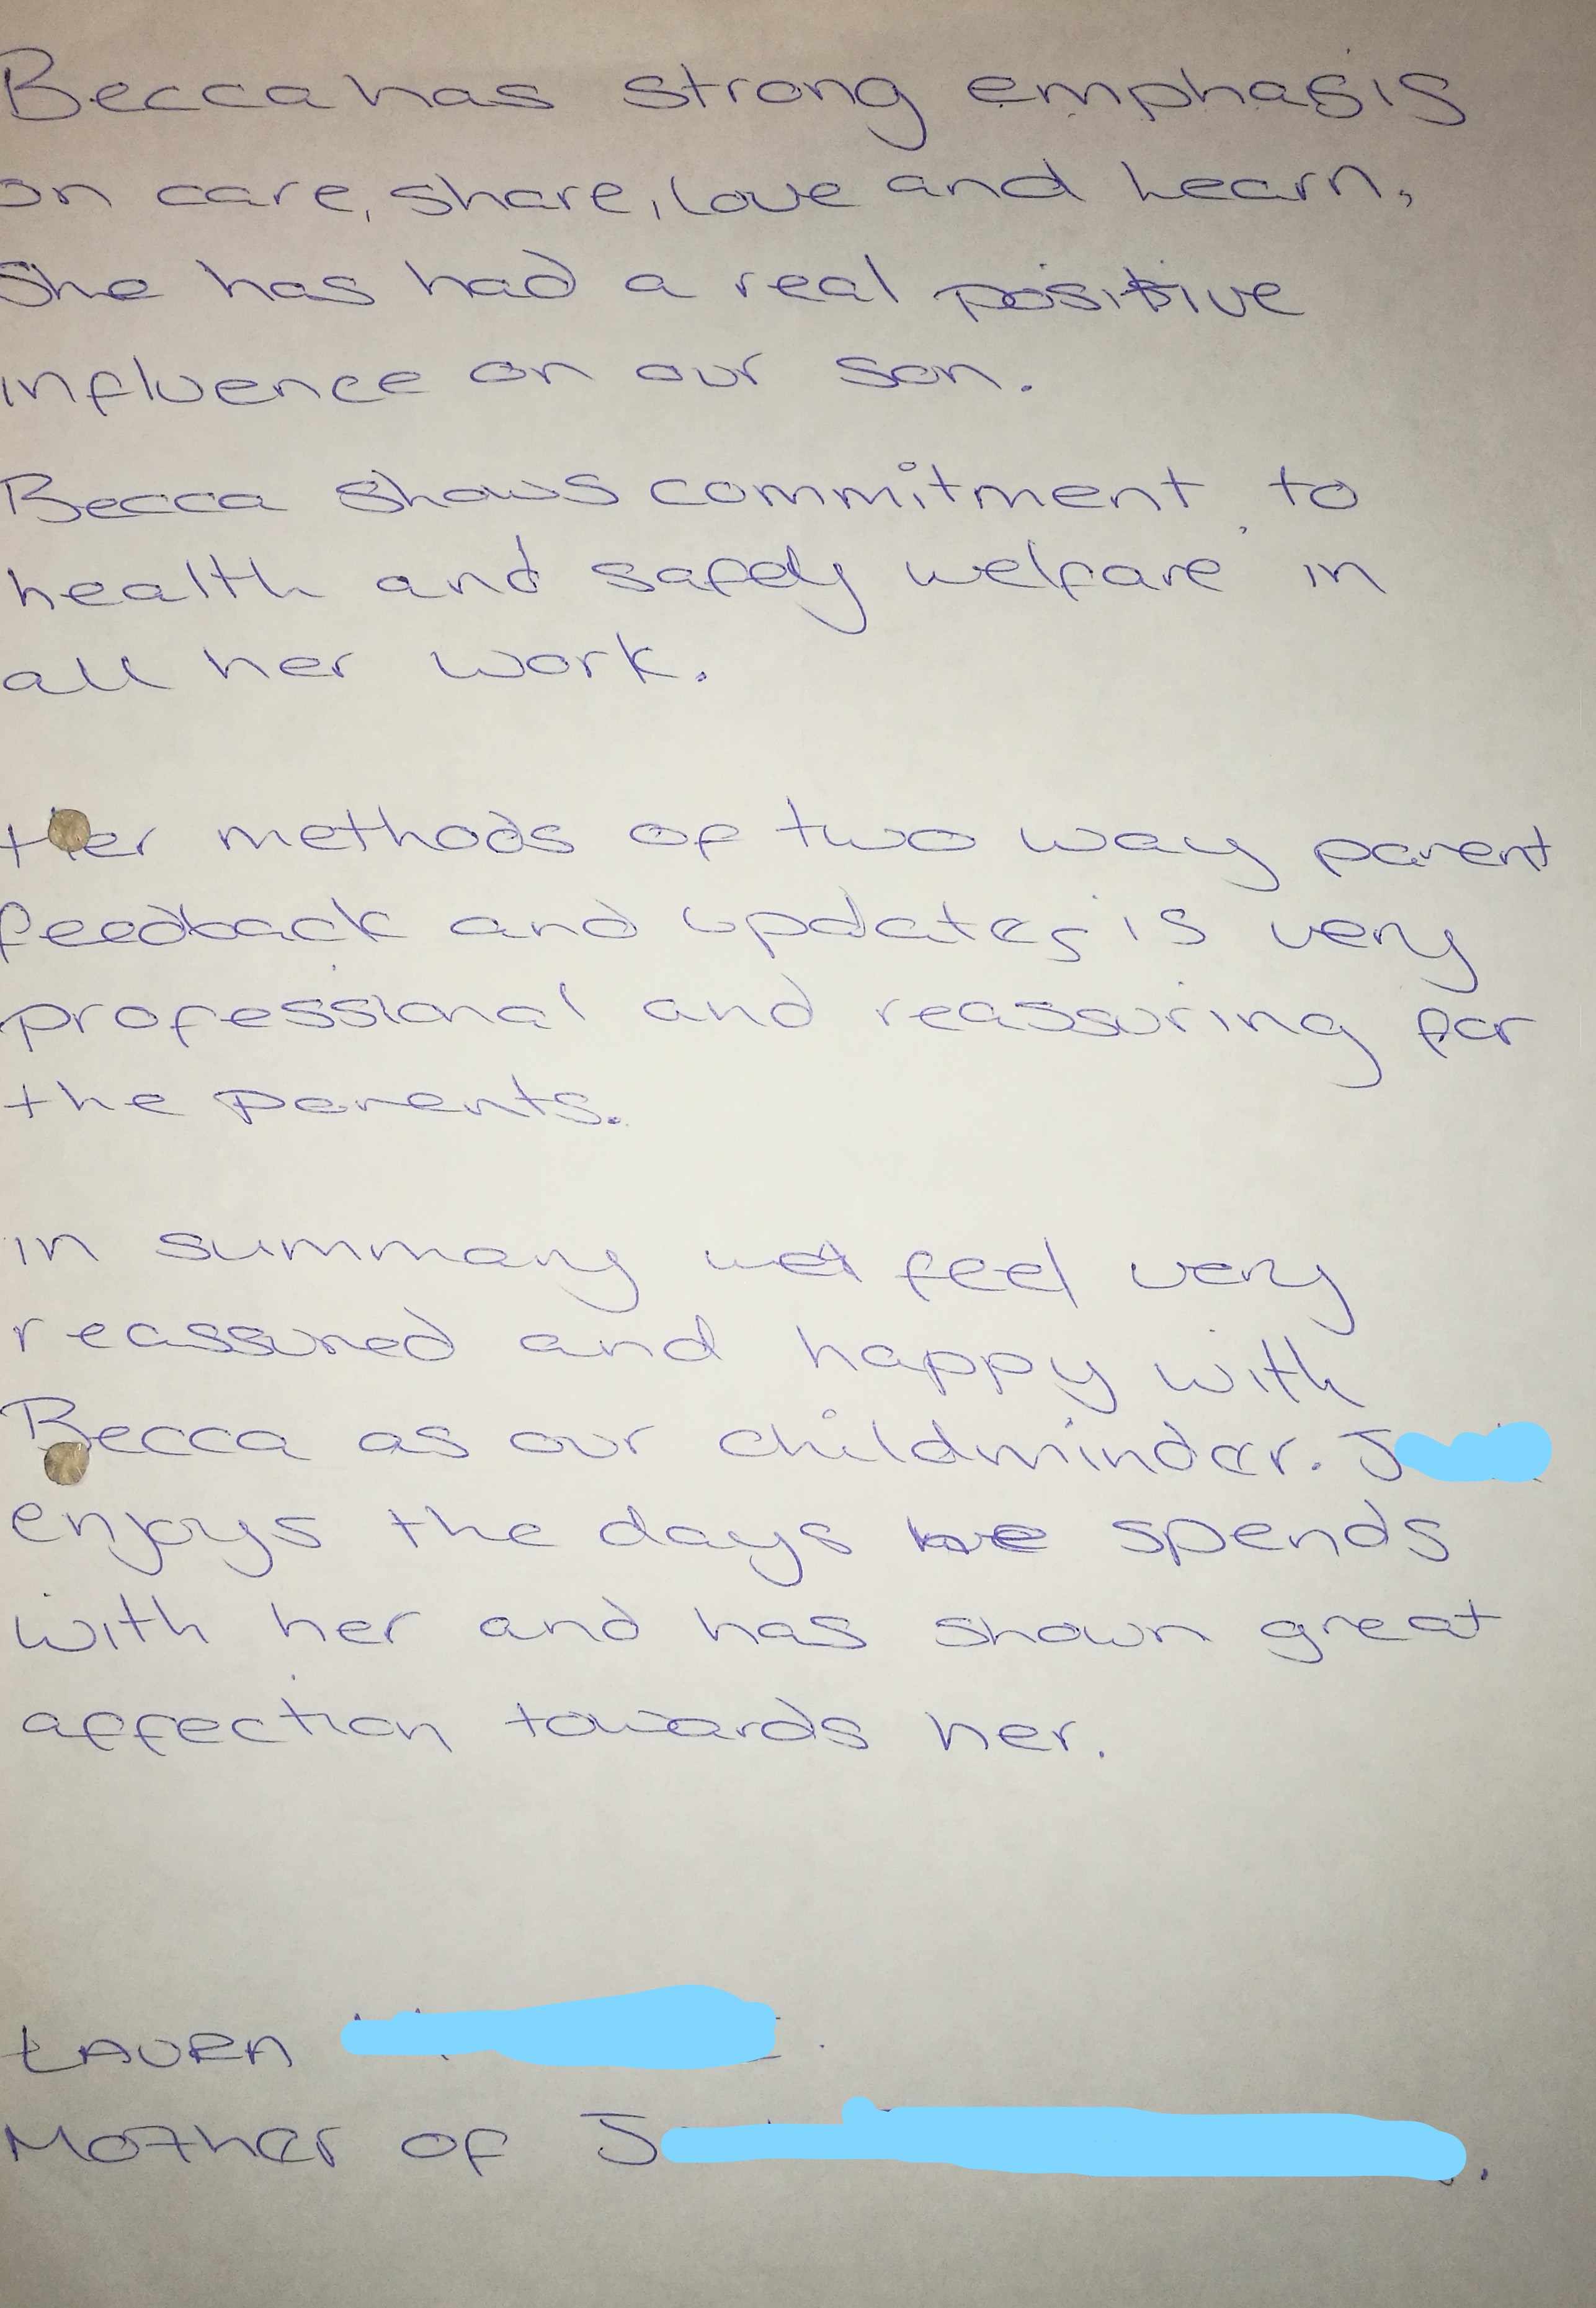 Becca has strong emphasis
on care, share, love and learn,
She has had a real positive
influence on our son.
Becca shows commitment to
health and safety welfare in
all her work.
Her methods of two way parent
feedback and updates is very
professional and reassuring for
the parents.
in summary we feel very
reassured and happy with
Becca as our childminder. J
enjoys the days he spends
with her and has shown great
affection towards her.
LAURA
Mother of J